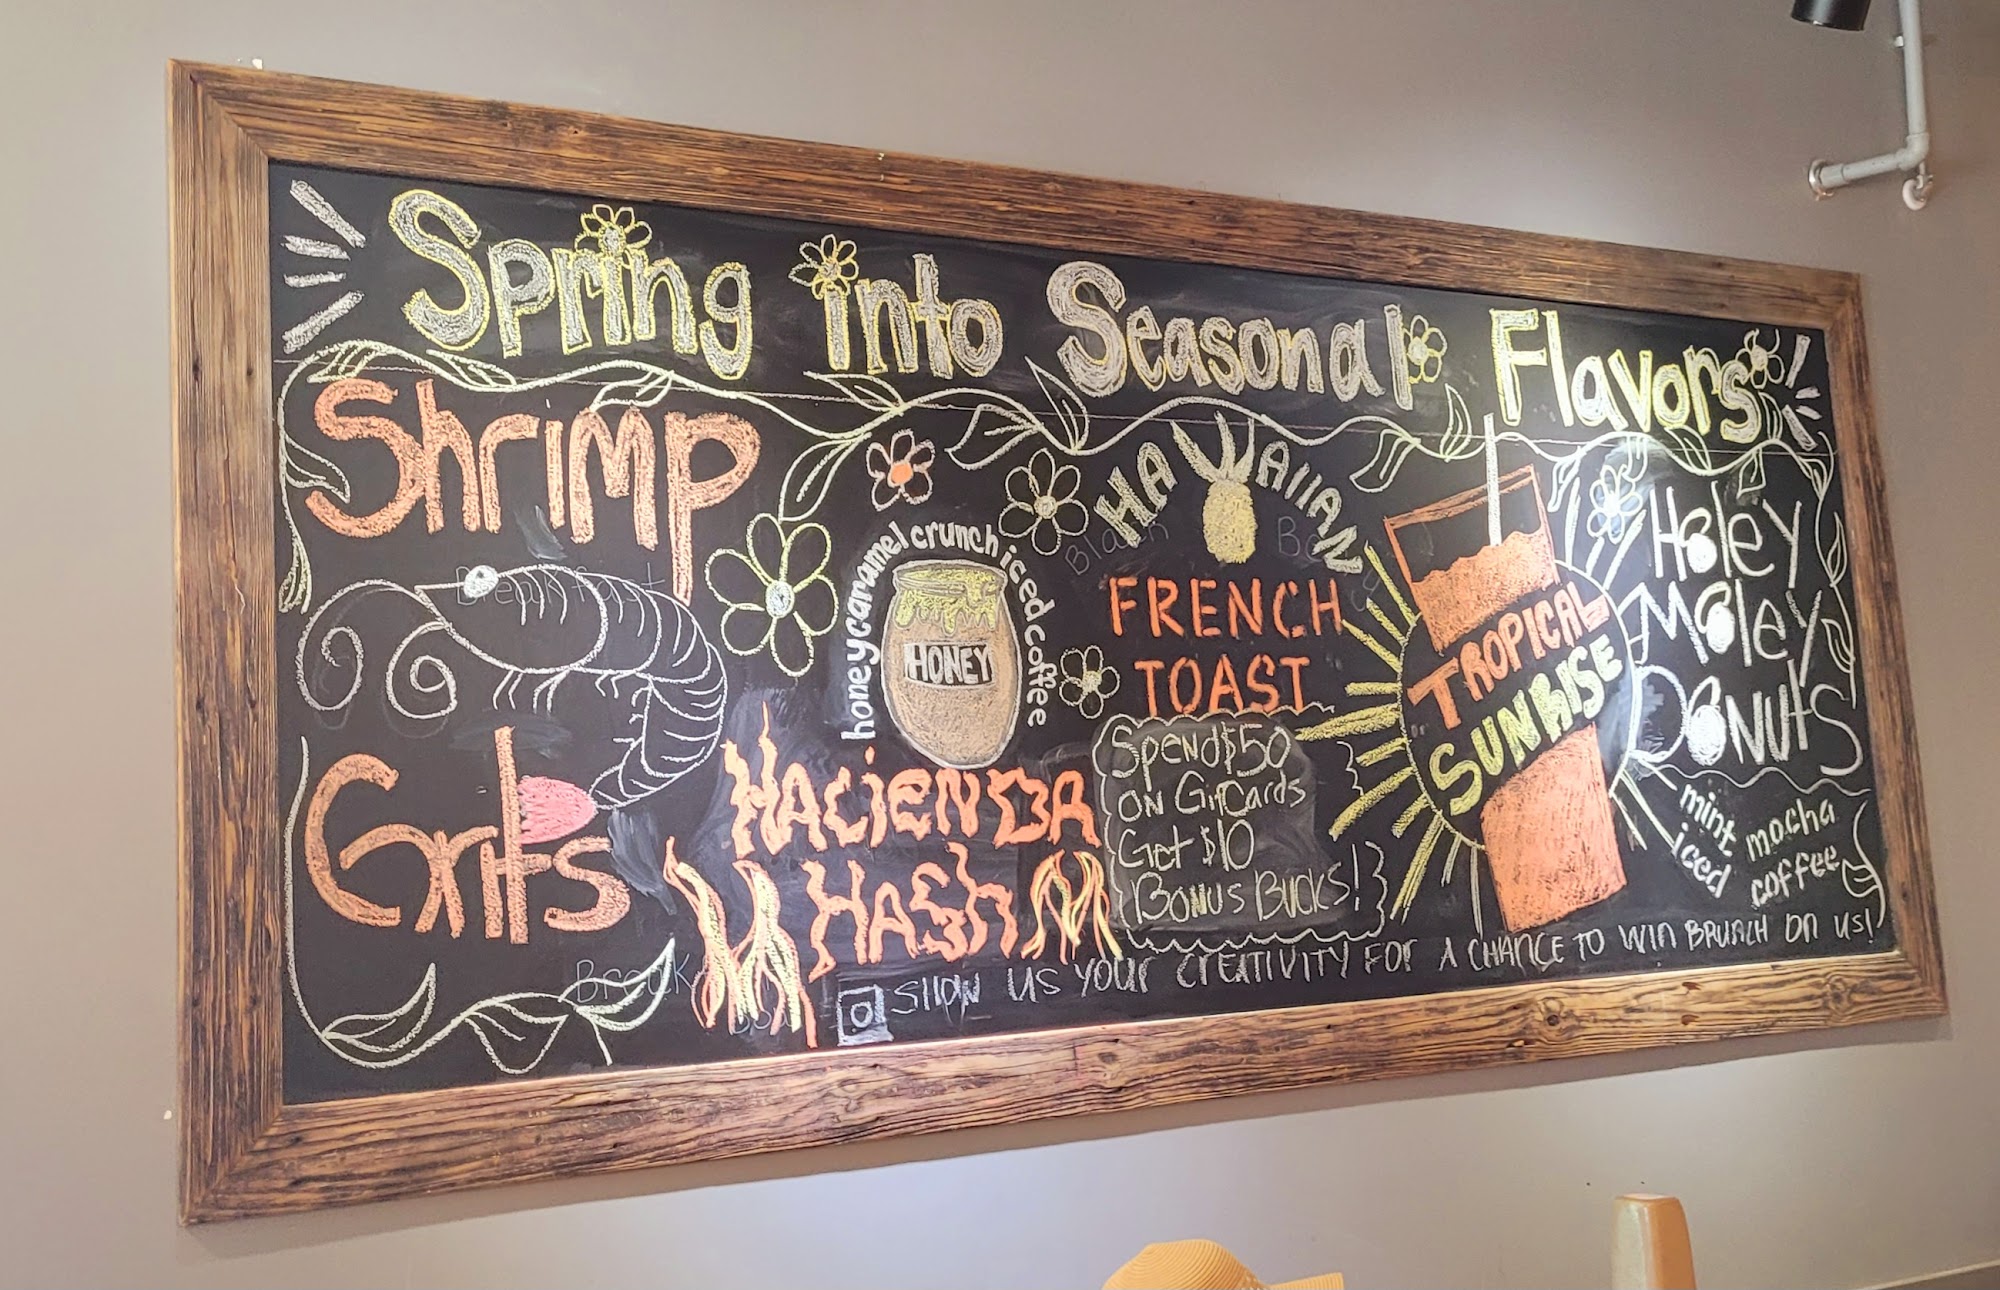 Spring into Seasonal Flavors
Shrimp
Grits
honey caramel crunch iced coffee
HONEY
HACiENDA
HASh
HAWAIIAN
FRENCH
TOAST
Spend $50
on GiftCards
Get $10
Bonus Bucks!
TROPICAL
SUNRISE
Holey
Moley
DONUtS
mint mocha
iced coffee
SHOW US YOUR CREATIVITY FOR A CHANCE TO WIN BRUNCH ON US!